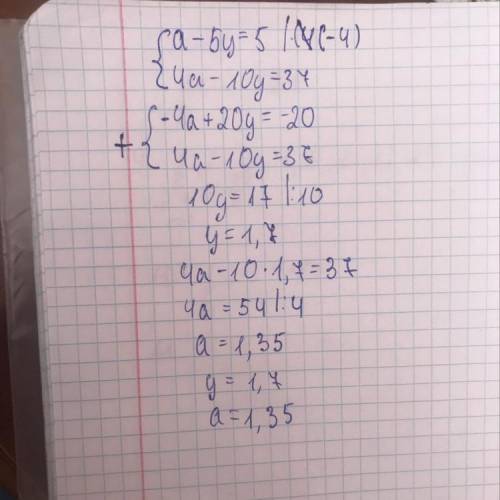 {a-5y=5 |·(-4)
4a-10y=37
+{-4a+20y=-20
4a-10y=37
10y=17 |:10
y=1,7
4a-10·1,7=37
4a=54|:4
a=1,35
y=1,7
a=1,35